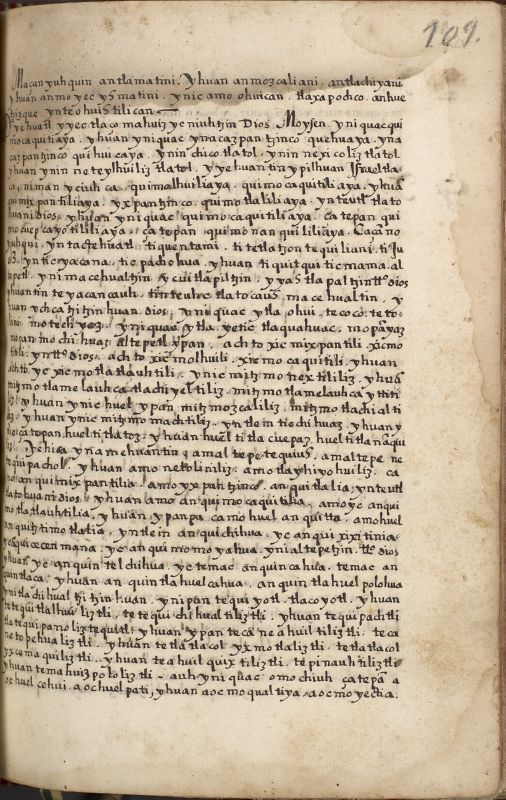 109.
Maçan yuh quin antlamatini. yhuan anmozcaliani. antlachiyani
yhuan anmoyec ysmatini. ynic amo ohuican. tlaxapochco. anhue
tzizque. ynteohuistilican
Yehuatl yyectlaco mahuiz yeniuhtzin Dios. Moysen, yniquac qui
mocaquitiaya. yhuan yniquac ynacazpantzinco quehuaya. yna
cazpantzinco quihuicaya. ynin chicotlatol. ynin nexicoliz tlatol
yhuan ynin neteylhuiliz tlatol. yyehuantin ypilhuan Israel tla
ca, niman yciuhca. quimolhuiliaya. quimocaquitiliaya. yhuā
quimixpantiliaya. yxpantzinco. quimotlaliliaya. ynteutl tlato
huani Dios. yhuan yniquac quimocaquitiliaya. çatepan qui
mocuepcayotililiaya. çatepan quimonanquililiaya. Caçano
yuhqui. yntatehuatl tiquentami. titetlatzontequiliani. ti Ju
ez. ynticyacana. ticpachohua. yhuan tiquitqui ticmama. al
tepetl. ynimacehualtzin ycuitlapiltzin. yyastlapaltzin tto Dios
yhuantin teyacancauh. tinteuhctlatocauh macehualtin. y
huan ychcahuitzinhuan Dios. yniquac ytla ohui. tecoco. teto
lini. motech yez. yniquac ytla yetic tlaquahuac. mopan yaz
mopan mochihuaz altepetl ypan. achto xicmixpantili. xicmo
titili. yntto Dios. achto xicmolhuili. xicmocaquitili. yhuan
achto ye xicmotlatlauhtili. ynic mitzmonextililiz. yhuā
mitzmotlamelauhca tlachiyeltiliz. mitzmotlamelauhca yttiti
liz. yhuan ynic huel ypan mitzmozcaliliz. mitzmotlachialti
liz. yhuan ynic mitzmomachtiliz. yntlein ticchihuaz. yhuan y
tic çatepan huel titlatoz. yhuan huel titlacuepaz. huel titlananqui
liz. Yehica ynamehuantin amaltepetequiuh. amaltepe ne
tequipachol. yhuan amonetoliniliz. amotlayhiyohuiliz. ca
amo anquimixpantilia. amo yxpantzinco. anquitlalia, ynteutl
tlatohuani Dios. yhuan amo anquimocaquitilia. amo yc anqui
motlatlauhtilia. yhuan ypampa camo huel anquitta. amo huel
anquihtimotlalia. yntlein anquichihua. yc anquixixitinia
ycaquicecenmana. yc anquimomoyahua. yn ialtepetzin. tto Dios
yhuan yc anquintelchihua. yc temac anquincahua. temac an
quintlaça. yhuan anquintlahuelcahua. anquintlahuelpolohua
ynitlachihualtzitzinhuan. ynipan tequiyotl. tlacoyotl. yhuan
tetequitlalhuiliztli. tetequichihualtiliztli. yhuan tequipachtli
tlatequipanoliztequitl. yhuan ypan teca neahuiltiliztli. teca
netopehualiztli. yhuan tetlatlacol yxmotlaliztli. tetlatlacol
yxcemaquiliztli. yhuan teahuilquixtiliztli. tepinauhtiliztli
yhuan temahuizpololiztli. auh yniquac omochiuh çatepan a
oc huel cehui. aoc huel pati, yhuan aocmo qualtiya. aocmo yectia.